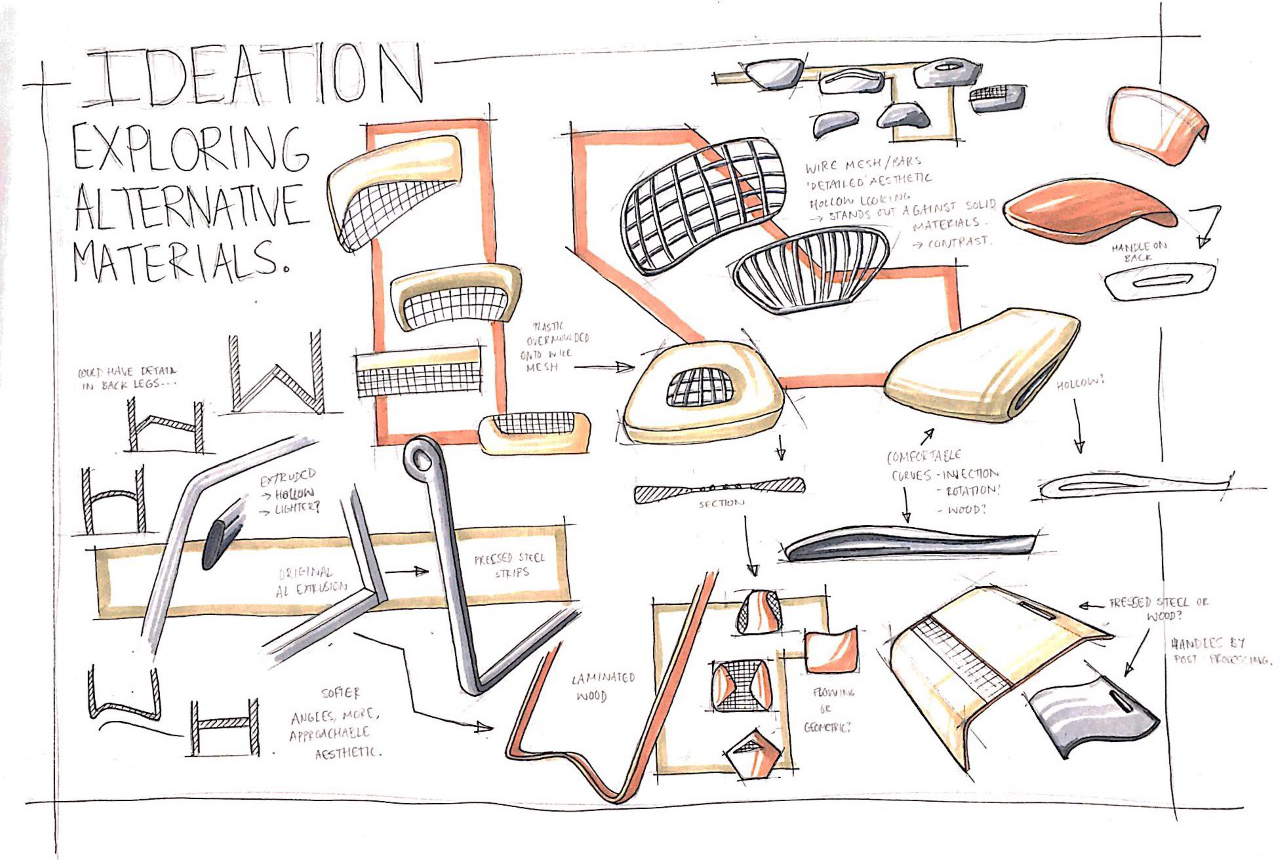 IDEATION
EXPLORING
ALTERNATIVE
MATERIALS.
WIRE MESH/BARS
'DETAILED' AESTHETIC
HOLLOW LOOKING
→ STANDS OUT AGAINST SOLID
MATERIALS.
→ CONTRAST.
HANDLE ON
BACK
PLASTIC
OVERMOULDED
ONTO WIRE
MESH
COULD HAVE DETAIL
IN BACK LEGS...
HOLLOW?
EXTRUDED
→ HOLLOW
→ LIGHTER?
SECTION
COMFORTABLE
CURVES - INJECTION
- ROTATION?
- WOOD?
ORIGINAL
AL EXTRUSION
PRESSED STEEL
STRIPS
PRESSED STEEL OR
WOOD?
HANDLES BY
POST PROCESSING.
SOFTER
ANGLES, MORE,
APPROACHABLE
AESTHETIC.
LAMINATED
WOOD
FLOWING
OR
GEOMETRIC?